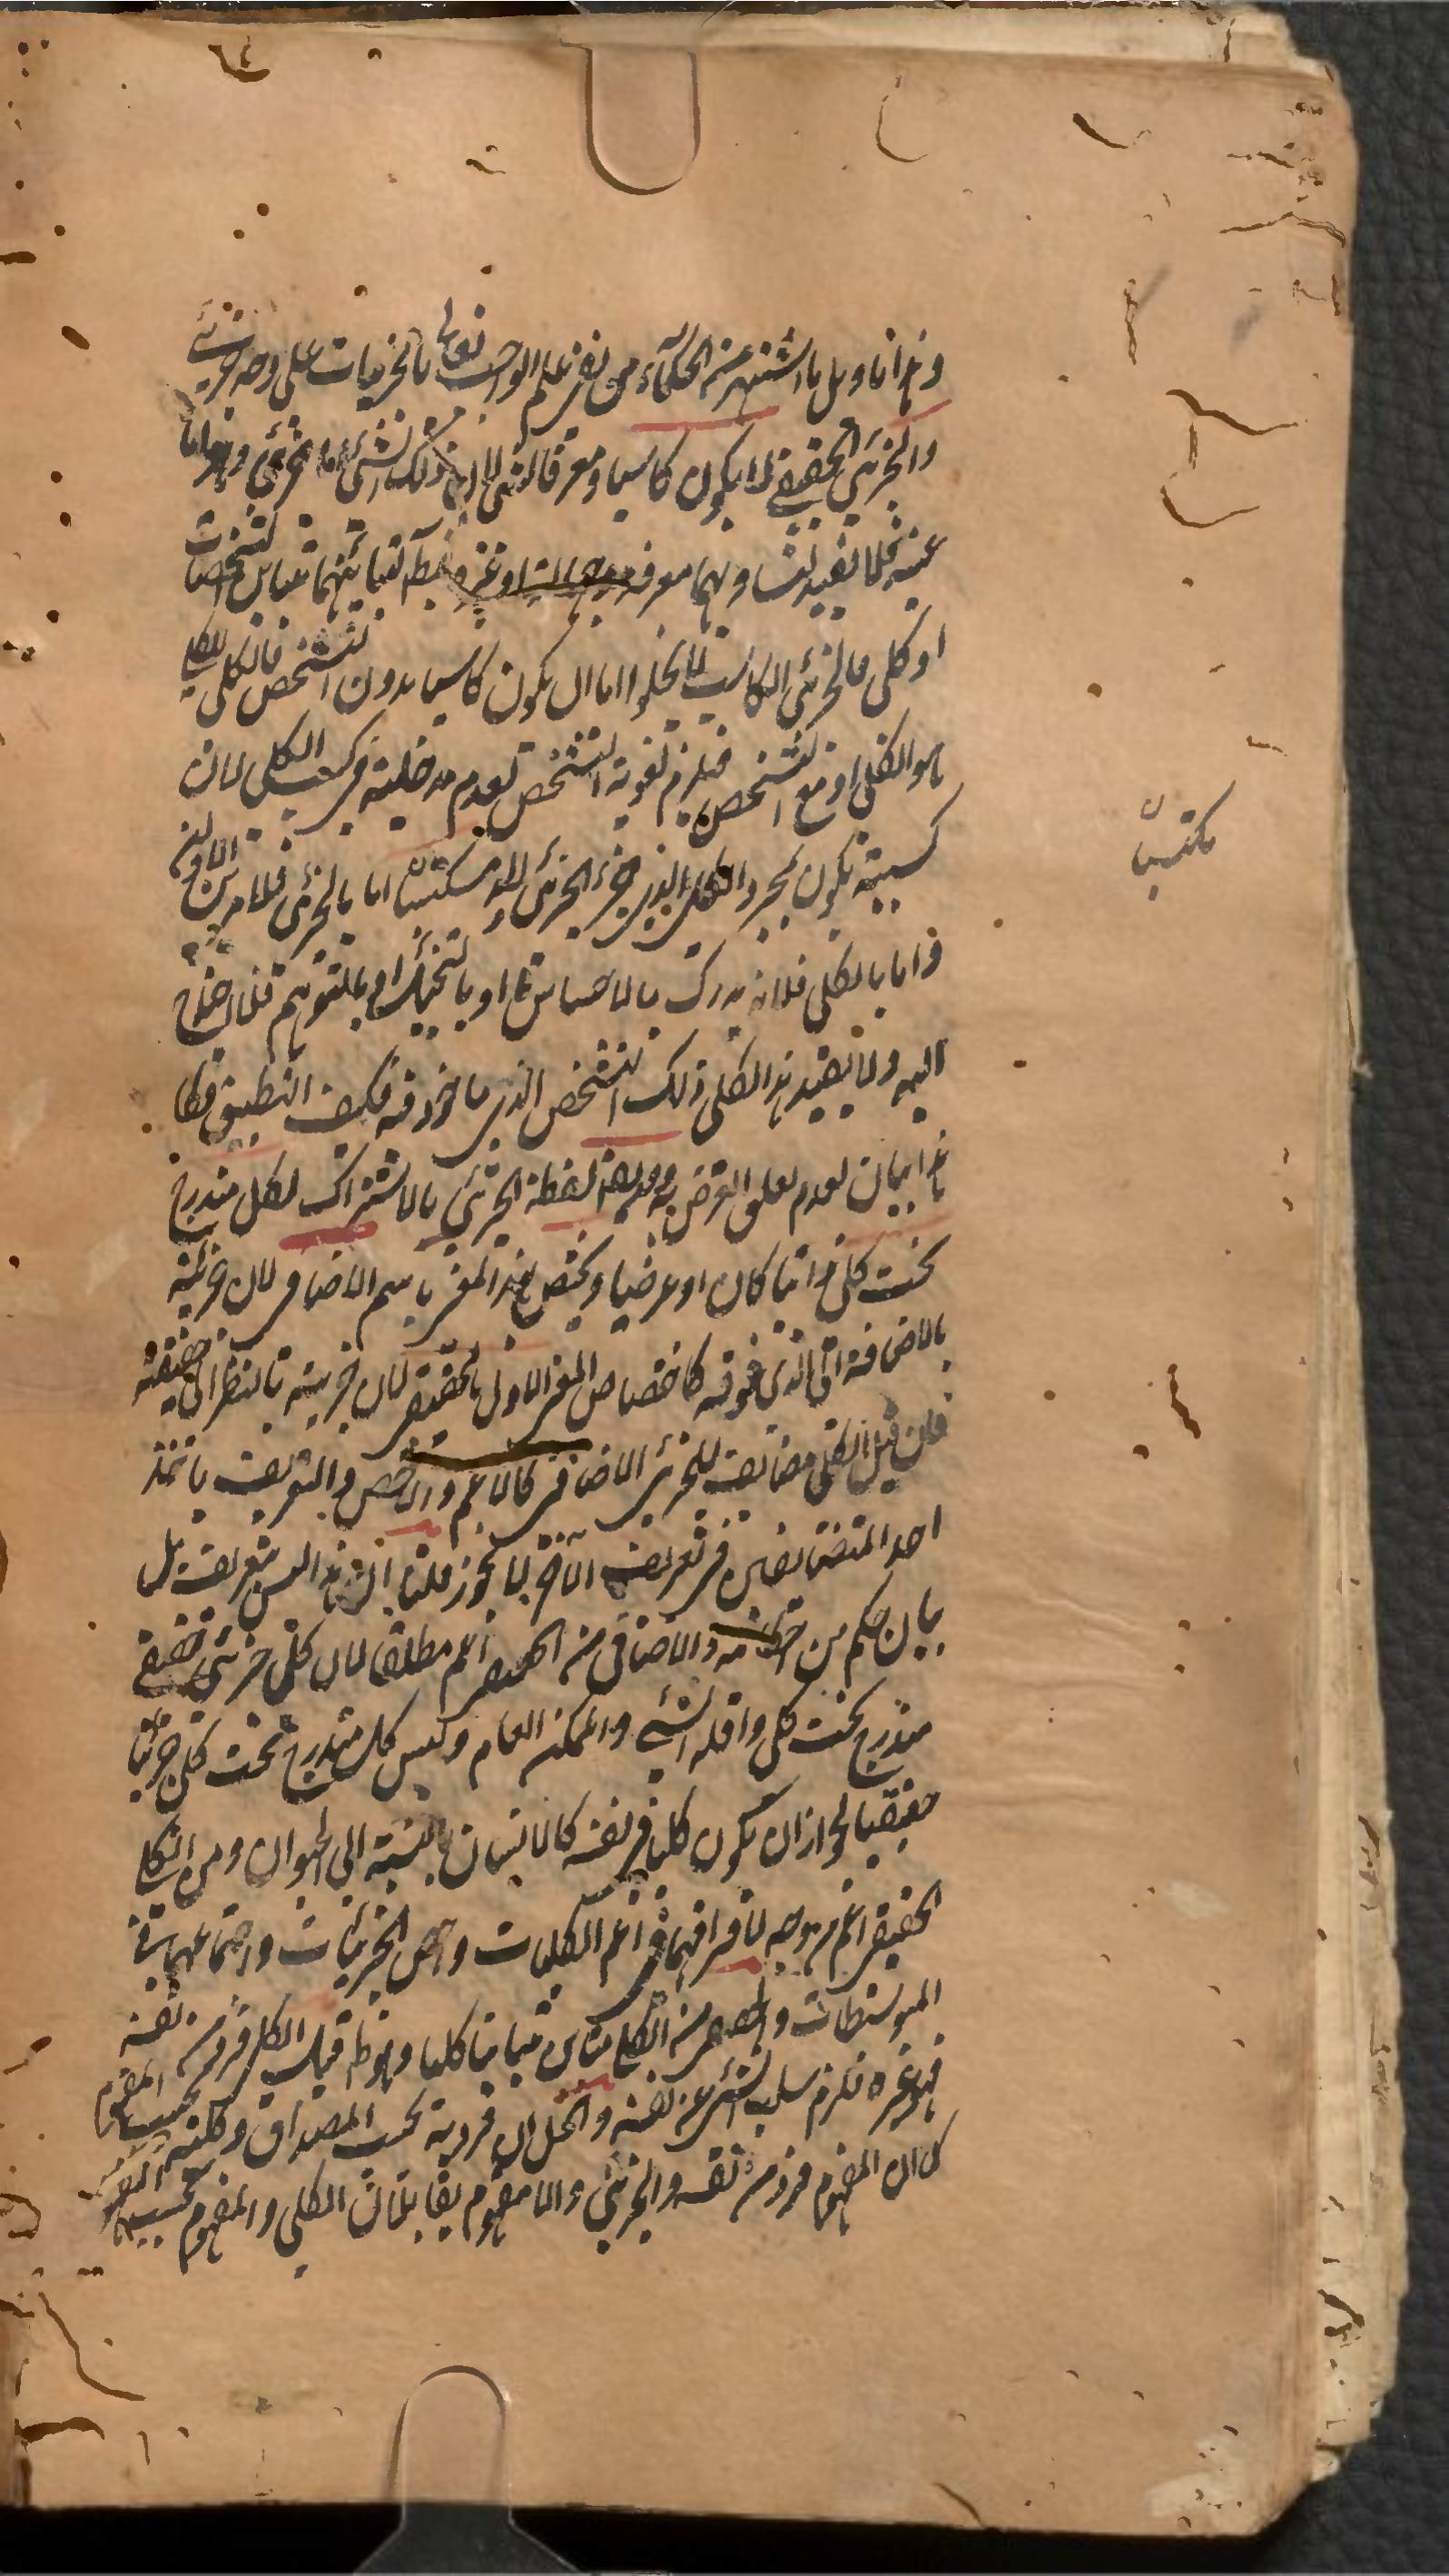 وهذا تاويل ما اشتهر من الحكماء من نفى علم الواجب تعالى بالجزئيات على وجه جزئى
والجزئى الحقيقى لا يكون كاسبا ومعرفا لشى لان ذلك الشئ اما جزئى وهو اما
عينه فلا تفيد لتساويهما معرفة وجهالة او غيره فيظهر تباينهما بتباين التشخصات
او كلى فالجزئى الكاسب لا يخلو اما ان يكون كاسبا بدون التشخص فالكلى للكلى
هو الكلى او مع التشخص فيلزم لغوية التشخص لعدم مدخليته فى كسب الكلى لان
كسبيته تكون بمجرد الكلى الذى جزء الجزئى ولا مكتسبا اما بالجزئى فلما مر من الاولين
واما بالكلى فلانه يدرك بالاحساس او بالتخيل او بالتوهم فلا احتياج
اليه ولا يفيد هذا الكلى ذلك التشخص الذى ماخوذ فيه فكيف التطبيق فكا
هذا بيان لعدم تعلق الغرض به وقد يقال لفظة الجزئى بالاشتراك لكل مندرج
تحت كلى ذاتيا كان او عرضيا ويختص بهذا المعنى باسم الاضافى لان جزئيته
بالاضافة الى الذى فوقه كاختصاص المعنى الاول بالحقيقى لان جزئيته بالنظر الى حقيقته
فان قيل الكلى مضائف للجزئى الاضافى كالاعم والاخص والتعريف باخذ
احد المتضائفين فى تعريف الآخر لا يجوز قلنا ان هذا ليس بتعريف بل
بيان حكم من احكامه والاضافى من الحقيقى اعم مطلقا لان كل جزئى حقيقى
مندرج تحت كلى واقله الشئ والممكن العام وليس كل مندرج تحت كلى جزئيا
حقيقيا لجواز ان يكون كليا فى نفسه كالانسان بالنسبة الى الحيوان ومن الكلى
الحقيقى اعم من وجه لافتراقهما فى اعم الكليات واخص الجزئيات واجتماعهما فى
المتوسطات والحقيقى من الكلى مباين تباينا كليا وهو ظاهر قيل الكلى فرد من نفسه
فهو غيره فلزم سلب الشئ عن نفسه والحل ان فرديته بحسب المصداق وكليته بحسب المفهوم
كما ان المفهوم فرد من نفسه والجزئى واللامفهوم يقابلان الكلى والمفهوم بحسب المفهوم
مكتسبا